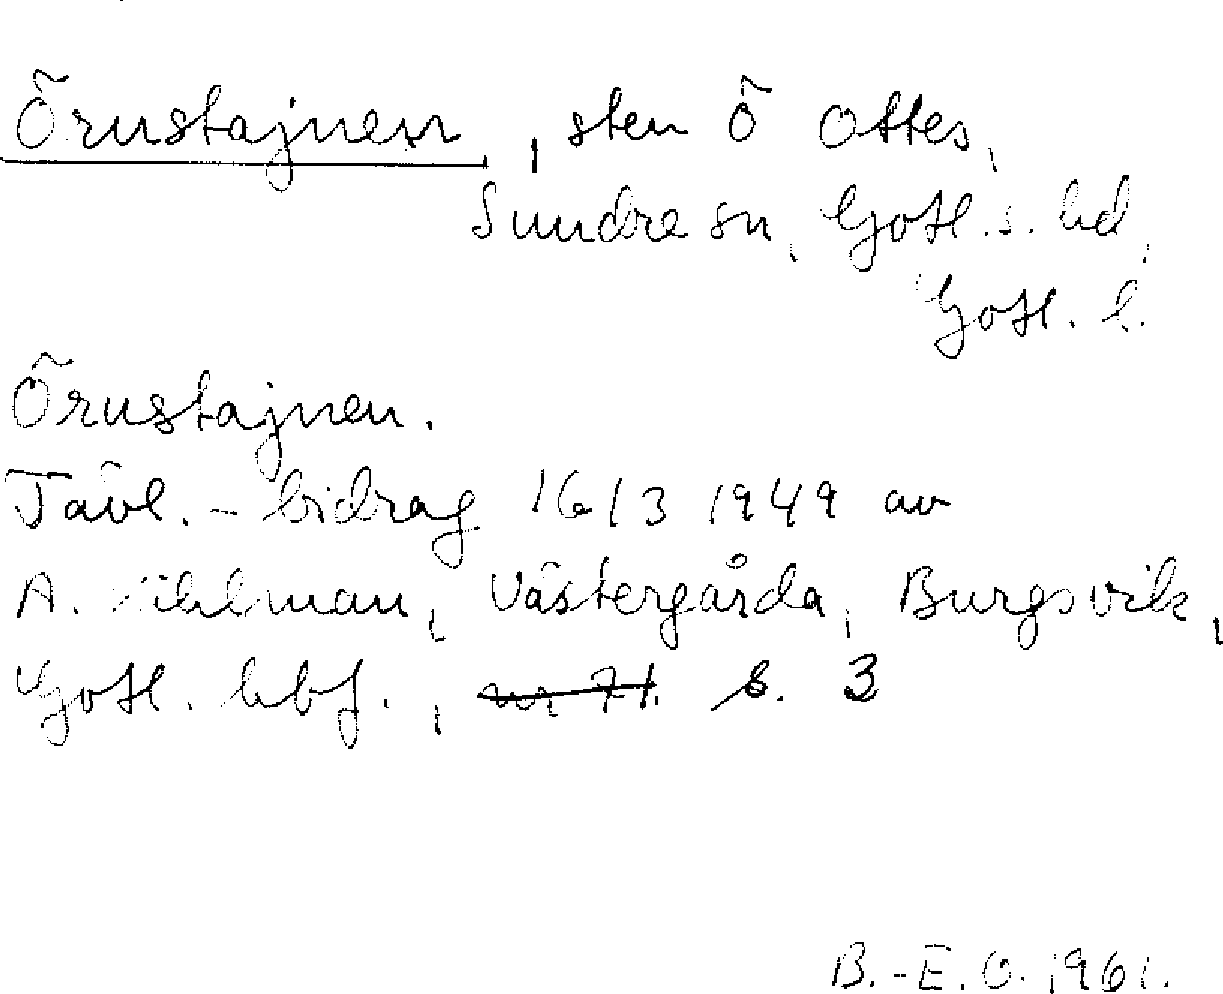 Örustajnen, sten Ö Ottes,
Sundre sn, Gotl. s. hd,
Gotl. l.
Örustajnen.
Tävl.-bidrag 16/3 1949 av
A. Västergårda, Burgsvik,
Gotl. hbf., nr 71. s. 3
B.-E. O. 1961.